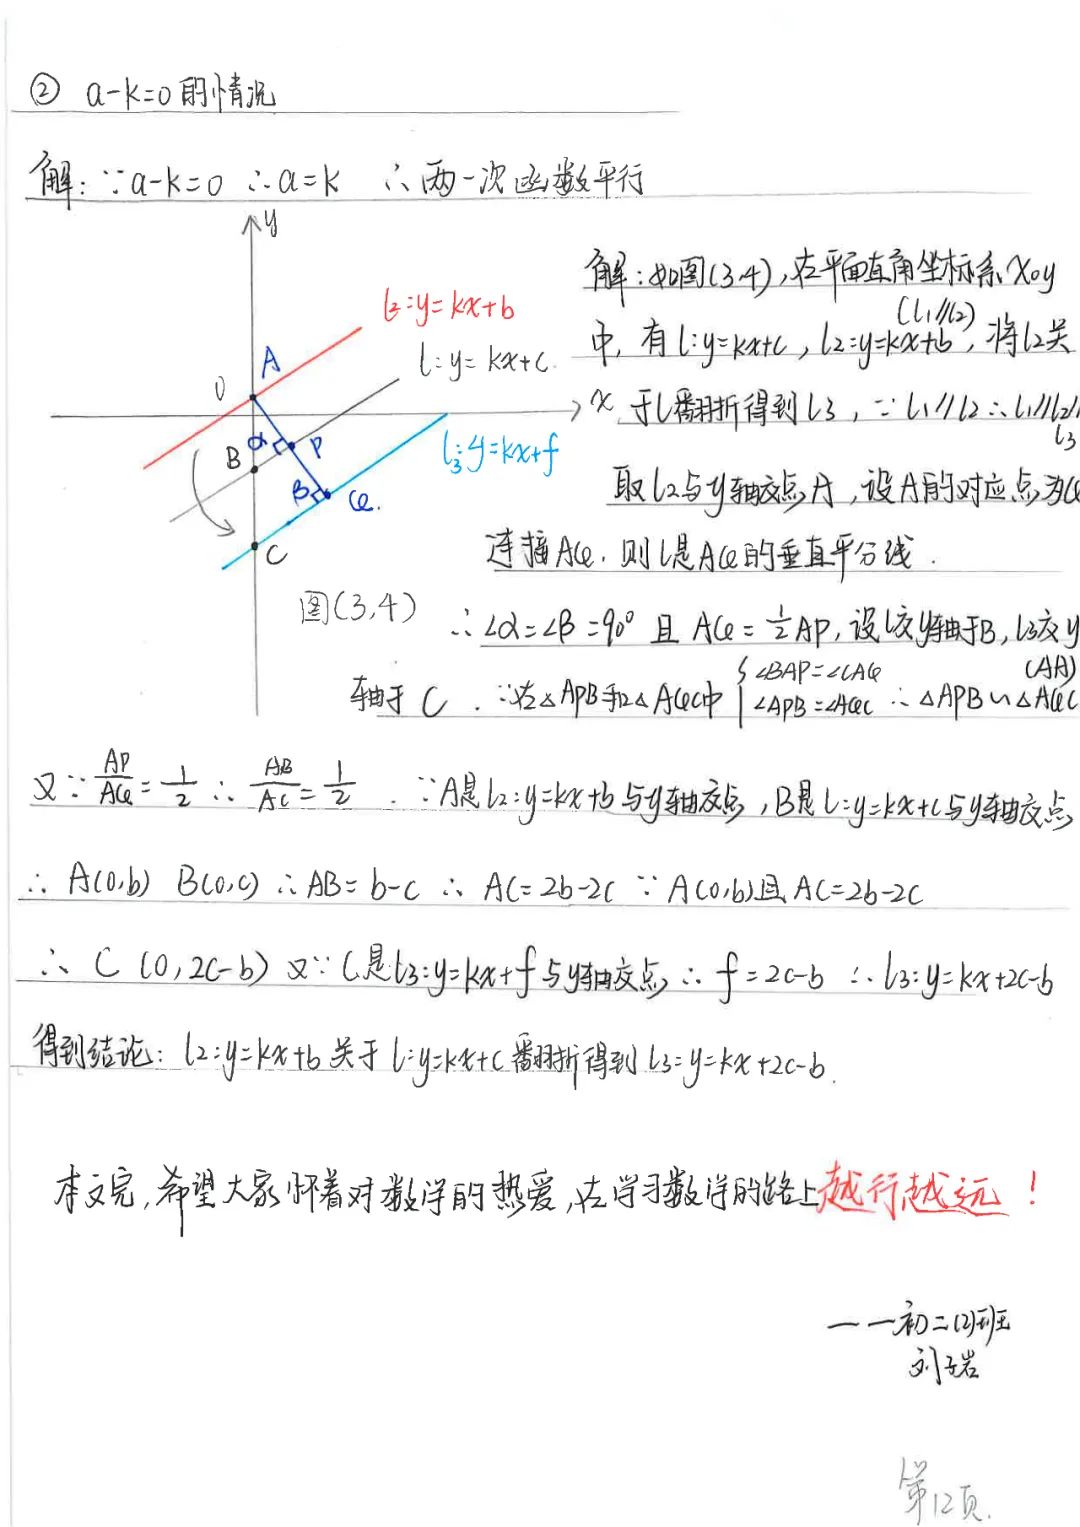 ② a-k=0的情况
解:∵a-k=0 ∴a=k ∴两一次函数平行
y
l2:y=kx+b
l:y=kx+c
A
0
x
α
P
B
l3:y=kx+f
β
Q
C
图(3,4)
解:如图(3,4),在平面直角坐标系xoy
(l1//l2)
中,有l:y=kx+c,l2=y=kx+b,将l2关
于l翻折得到l3,∵l1//l2∴l1//l2//
l3
取l2与y轴交点A,设A的对应点为Q
连接AQ.则l是AQ的垂直平分线.
∴∠α=∠β=90° 且 AQ=1/2AP,设l交y轴于B,l3交y
轴于C.∵在△APB和△AQC中{∠BAP=∠CAQ ∠APB=∠AQC ∴△APB∽△AQC (AA)
又∵AP/AQ=1/2∴AB/AC=1/2.∵A是l2:y=kx+b与y轴交点,B是l:y=kx+c与y轴交点
∴A(0,b) B(0,c)∴AB=b-c ∴AC=2b-2c ∵A(0,b)且AC=2b-2c
∴C(0,2c-b)又∵C是l3:y=kx+f与y轴交点∴f=2c-b ∴l3:y=kx+2c-b
得到结论:l2:y=kx+b关于l:y=kx+c翻折得到l3=y=kx+2c-b.
本文完,希望大家怀着对数学的热爱,在学习数学的路上越行越远!
——初二(2)班
刘子岩
第12页.